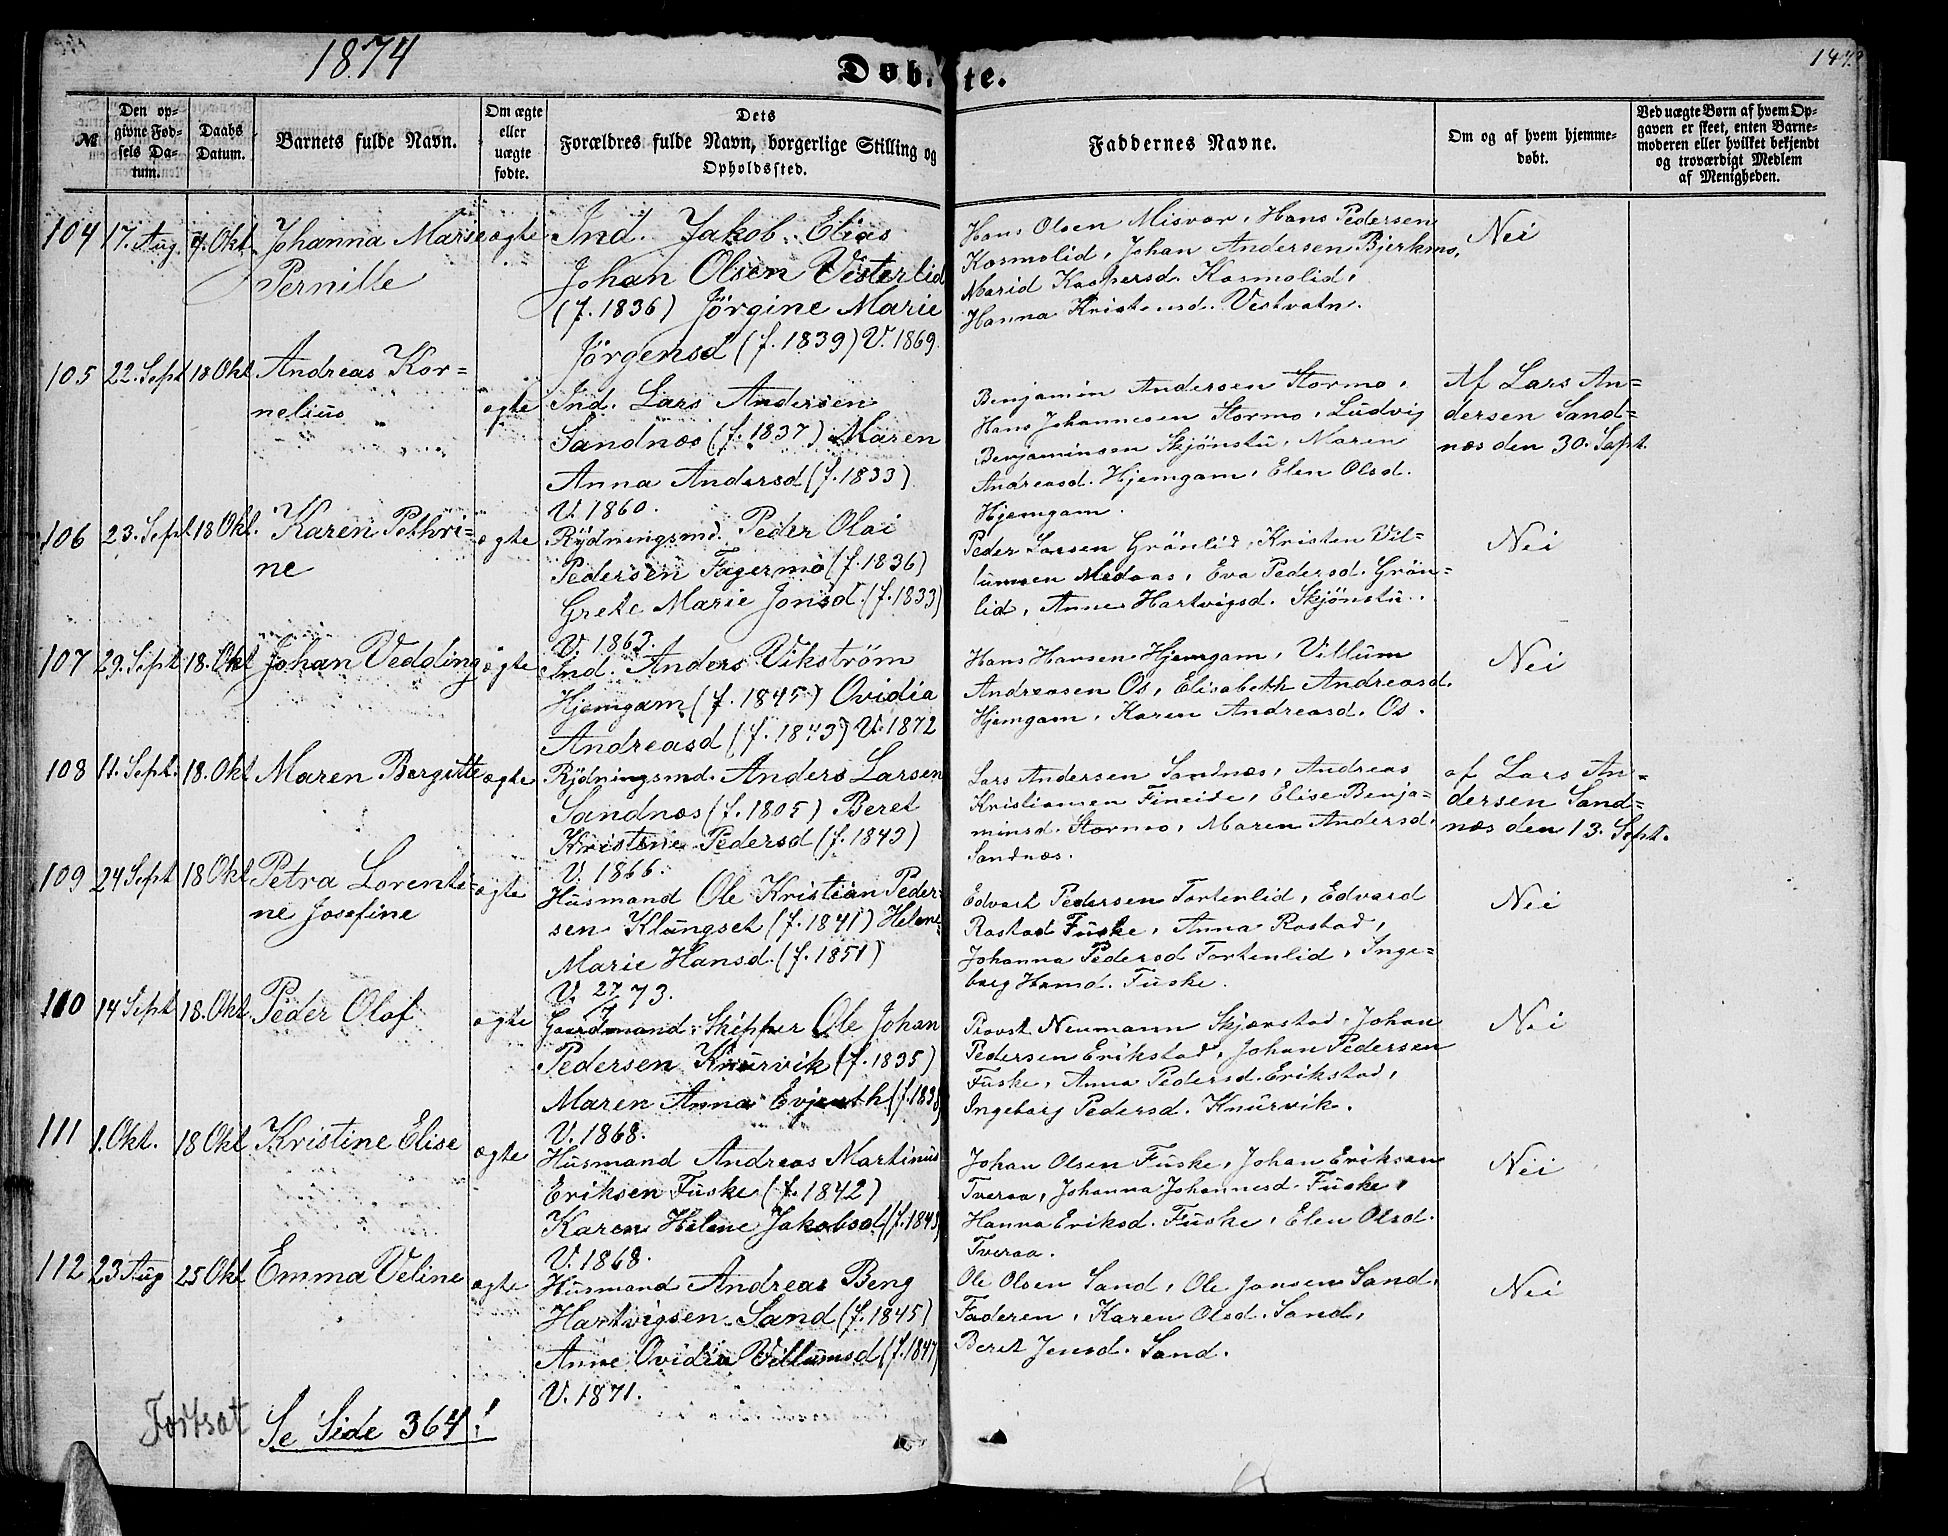 1874
Døbte.
№
Den op-
givne Fød-
sels Da-
tum.
Daabs
Datum.
Barnets fulde Navn.
Om ægte
eller
uægte
fødte.
Dets
Forældres fulde Navn, borgerlige Stilling og
Opholdssted.
Faddernes Navne.
Om og af hvem hjemme-
døbt.
Ved uægte Børn af hvem Op-
gaven er skeet, enten Barne-
moderen eller hvilket bekjendt
og troværdigt Medlem
af Menigheden.
104 17. Aug. 4. Okt. Johanna Marie
Pernille
ægte
Ind. Jakob Elias
Johan Olsen Vesterlid
(f. 1836) Jörgine Marie
Jörgensd (f. 1839) V. 1869.
Hans Olsen Misvær, Hans Pedersen
Kosmolid, Johan Andersen Bjerkmo,
Marid Kaspersd. Kosmolid,
Hanna Kristensd. Vestvatn.
Nei
105 22. Sept 18 Okt Andreas Kor=
nelius
ægte
Ind. Lars Andersen
Sandnæs (f. 1837) Maren
Anna Andersd (f. 1833)
V. 1860.
Benjamin Andersen Stormo,
Hans Johannesen Stormo, Ludvig
Benjaminsen Skjönstu, Maren
Andreasd. Hjemgam, Elen Olsd.
Hjemgam.
Af Lars An=
dersen Sand=
næs den 30. Sept.
106 23. Sept 18 Okt. Karen Pethri=
ne
ægte
Rydningsmd. Peder Olai
Pedersen Fagermo (f. 1836)
Grete Marie Jonsd. (f. 1833)
V. 1863.
Peder Larsen Grönlid, Kristen Vil=
lumsen Medaas, Eva Pedersd. Grön=
lid, Anne Hartvigsd. Skjönstu.
Nei
107 29. Sept 18. Okt Johan Vedding
ægte
Ind. Anders Vikström
Hjemgam (f. 1845) Ovidia
Andreasd (f. 1843) V. 1872
Hans Hansen Hjemgam, Villum
Andreasen Os, Elisabeth Andreasd.
Hjemgam, Karen Andreasd. Os.
Nei
108 11. Sept. 18. Okt Maren Bergitte
ægte
Rydningsmd. Anders Larsen
Sandnæs (f. 1805) Beret
Kristine Pedersd (f. 1843)
V. 1866.
Lars Andersen Sandnæs, Andreas
Kristiansen Fineide, Elise Benja=
minsd. Stormo, Maren Andersd.
Sandnæs.
af Lars An=
dersen Sand=
næs den 13. Sept.
109 24 Sept 18 Okt Petra Lorenti=
ne Josefine
ægte
Husmand Ole Kristian Peder=
sen Klungset (f. 1841) Helene
Marie Hansd. (f. 1851)
V. 27/7 73.
Edvart Pedersen Tortenlid, Edvard
Rostad Fuske, Anna Rostad,
Johanna Pedersd Tortenlid, Inge=
borg Hansd. Fuske.
Nei
110 14 Sept 18. Okt Peder Olof
ægte
Gaardmand, Skipper Ole Johan
Pedersen Knurvik (f. 1835)
Maren Anna Evjenth (f. 1838)
V. 1868.
Provst Neumann Skjærstad, Johan
Pedersen Erikstad, Johan Pedersen
Fuske, Anna Pedersd. Erikstad,
Ingeborg Pedersd. Knurvik.
Nei
111 1. Okt. 18 Okt Kristine Elise
ægte
Husmand Andreas Martinus
Eriksen Fuske (f. 1842)
Karen Helene Jakobsd (f. 1845)
V. 1868.
Johan Olsen Fuske, Johan Eriksen
Tveraa, Johanna Johannesd. Fuske,
Hanna Eriksd. Fuske, Elen Olsd.
Tveraa.
Nei
112 23 Aug 25 Okt Emma Veline
ægte
Husmand Andreas Beng
Hartvigsen Sand (f. 1845)
Anne Ovidia Villumsd (f. 1847)
V. 1871.
Ole Olsen Sand, Ole Jansen Sand,
Faderen, Karen Olsd. Sand,
Beret Jensd. Sand.
Nei
Fortsat Se Side 364!